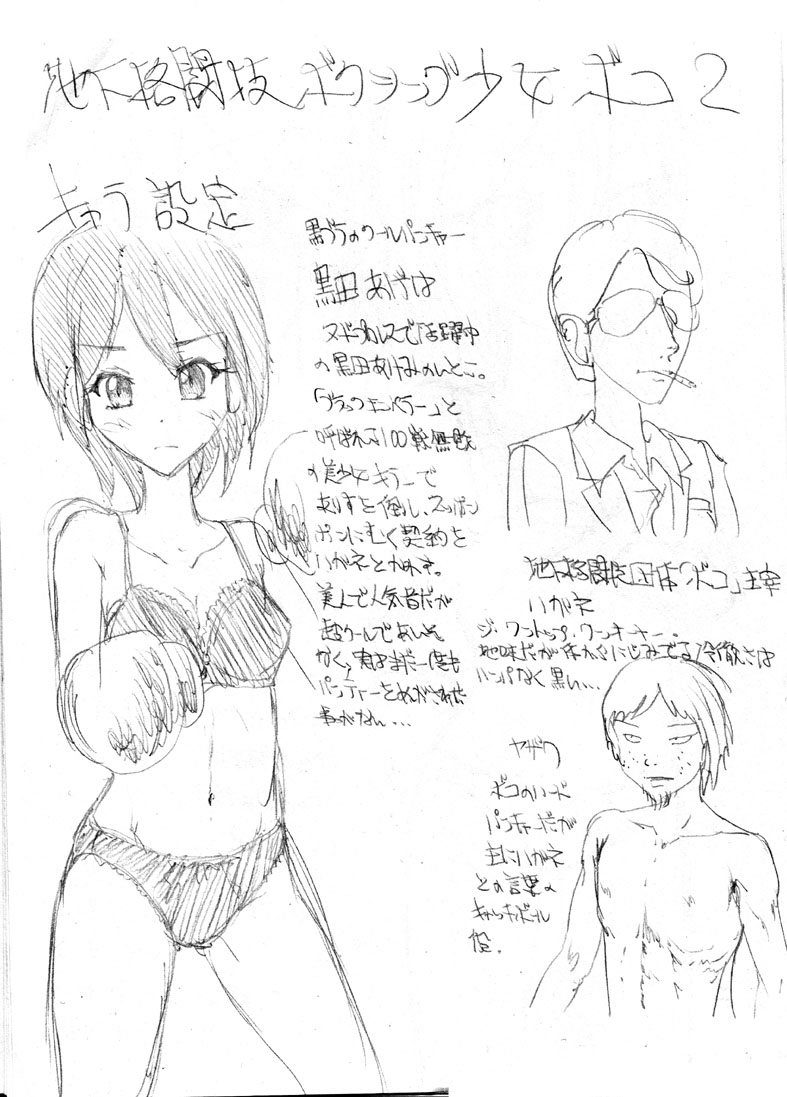 地下格闘技ボクシング少女ボコ2
キャラ設定
黒ブラのクールパンチャー
黒田あげは
ヌードプロレスで活躍中
の黒田あけみのいとこ。
「ブラックエンペラー」と
呼ばれる100戦無敗
の美少女キラーで
ありすを倒し、スッポン
ポンにむく契約を
ハガネとかわす。
美人で人気者だが
超クールであいそ
なく、実はまだ一度も
パンティーをぬがされた
事がない…
地下格闘技団体「ボコ」主宰
ハガネ
ジ・ワントップ・ワンオーナー。
地味だが体からにじみでる冷徹さは
ハンパなく黒い…
ヤザワ
ボコのハード
パンチャーだが
主にハガネ
との言葉の
キャッチボール
役。